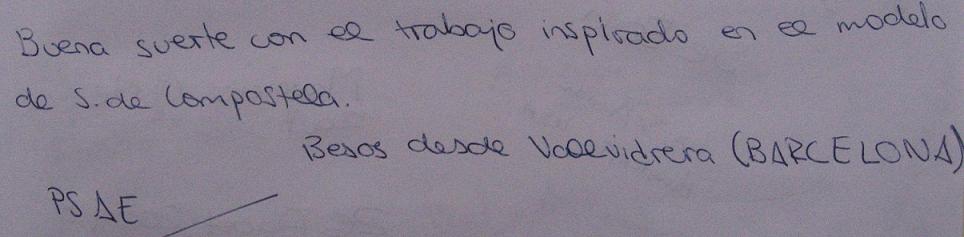 Buena suerte con el trabajo inspirado en el modelo
de S. de Compostela.
Besos desde Vallvidrera (BARCELONA)
PSAE